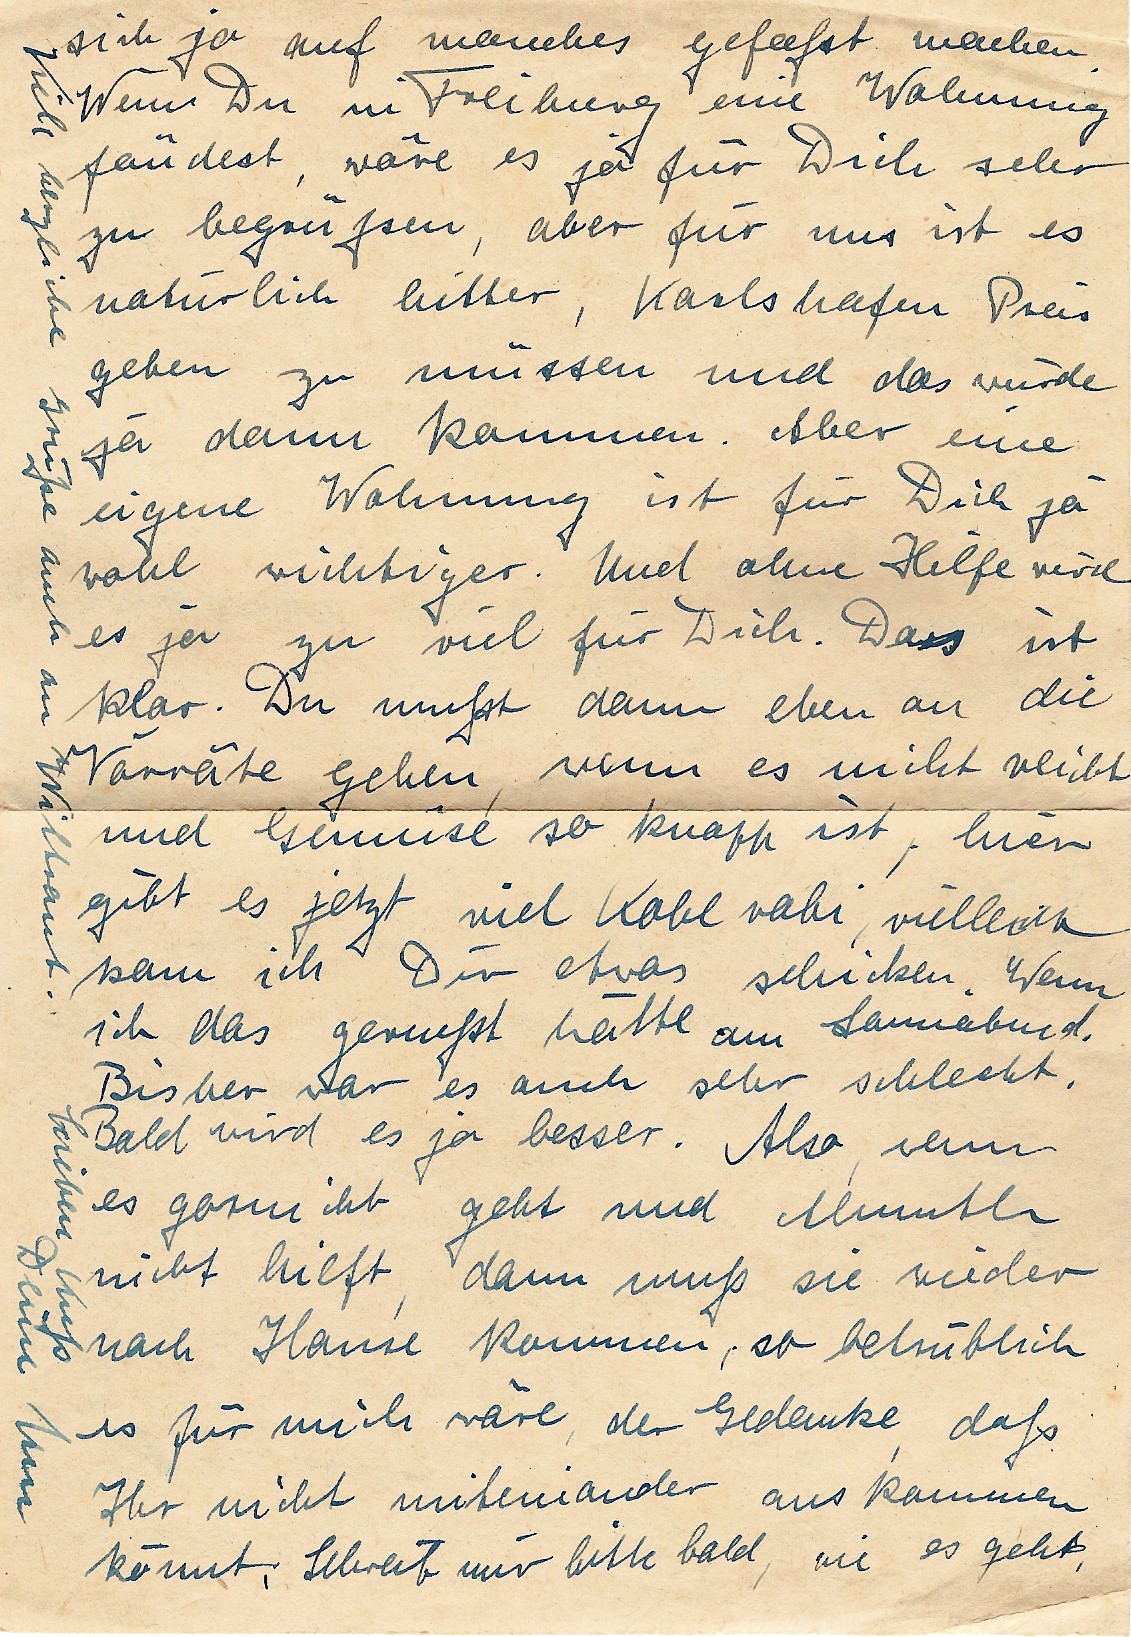 sich ja auf manches gefaßt machen.
Wenn Du in Freiburg eine Wohnung
fändest, wäre es ja für Dich sehr
zu begrüßen, aber für uns ist es
natürlich bitter, Karlshafen Preis
geben zu müssen und das würde
ja dann kommen. Aber eine
eigene Wohnung ist für Dich ja
wohl wichtiger. Und ohne Hilfe wird
es ja zu viel für Dich. Das ist
klar. Du mußt dann eben an die
Vorräte gehen, wenn es nicht reicht
und Gemüse so knapp ist, hier
gibt es jetzt viel Kohl rabi, vielleicht
kann ich Dir etwas schicken. Wenn
ich das gewußt hätte am Sonnabend.
Bisher war es auch sehr schlecht.
Bald wird es ja besser. Also, wenn
es garnicht geht und Almuth
nicht hilft, dann muß sie wieder
nach Hause kommen, so betrüblich
es für mich wäre, der Gedanke, daß
Ihr nicht miteinander aus kommen
könnt. Schreib mir bitte bald, wie es geht.
Viele herzliche Grüße auch an Wiltraut.
lieben Kuß
Deine